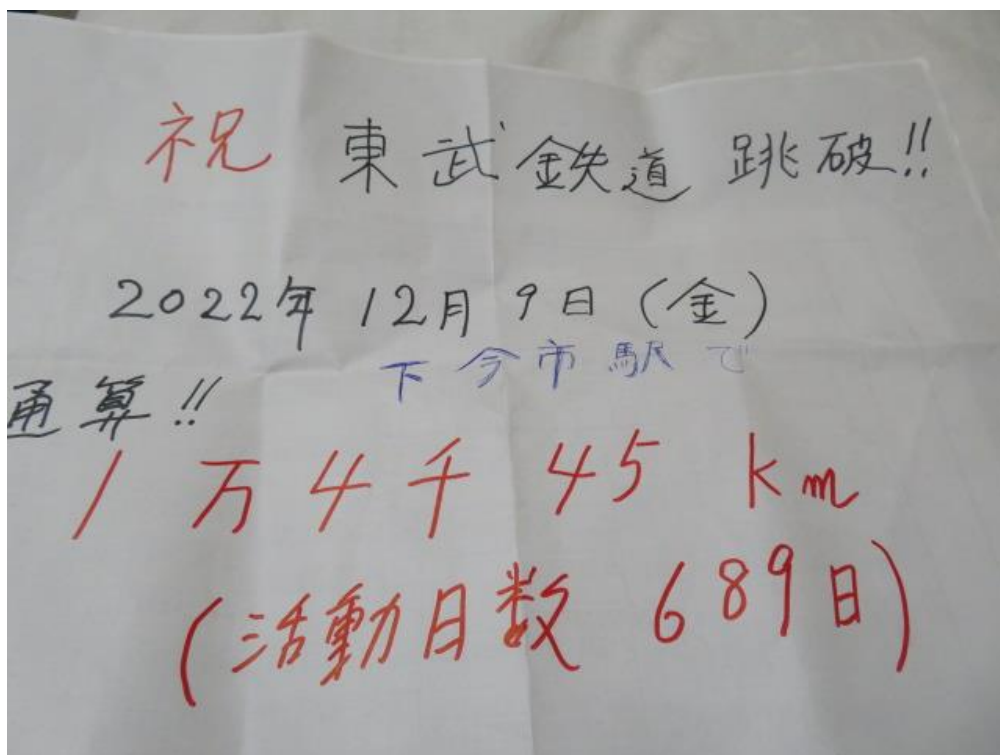 祝 東武鉄道 跳破!!
2022年 12月 9日 (金)
下今市駅で
通算!!
1万4千45km
(活動日数 689日)